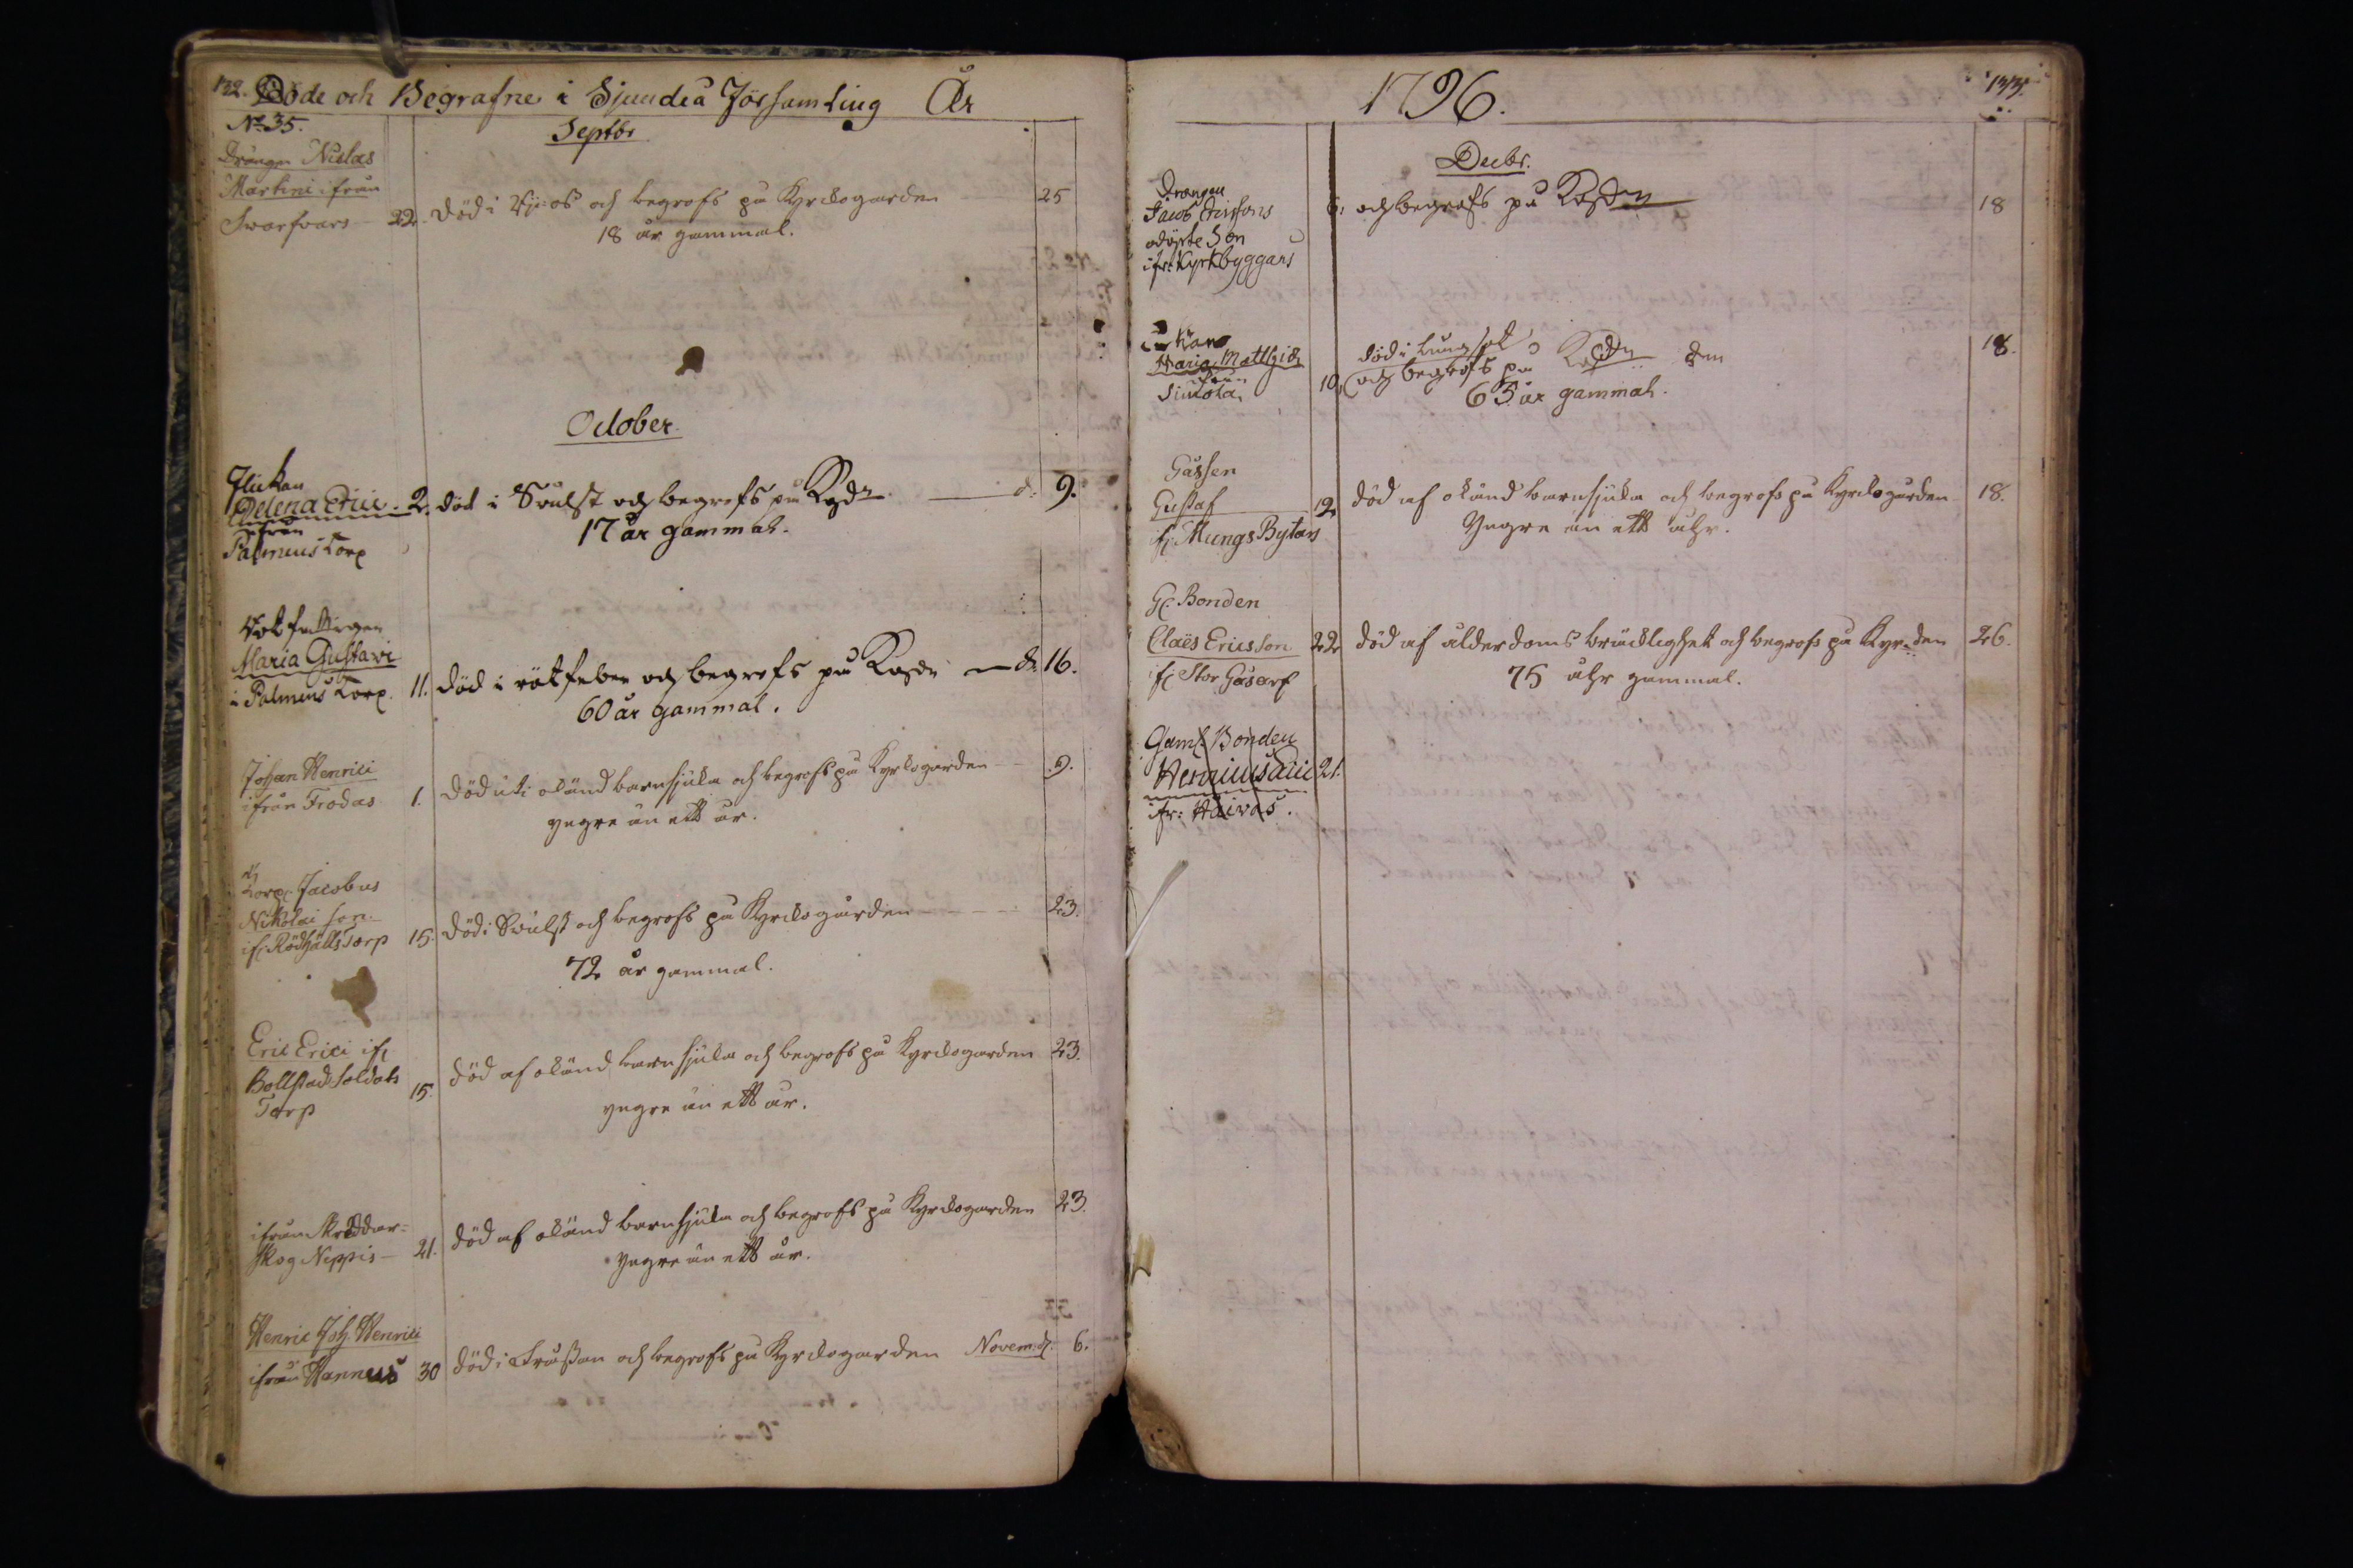 132. Döde och Begrafne i Sjundeå Församling År
No 35.
Septbr
Drängen Niclas
Martini ifrån
Swarfvars 22. död i och begrofs på Kyrkogården 25
18 år gammal.
October.
Flickan
Helena Erici 2. död i Svulst och begrofs på Kgdn d: 9.
ifrån
17 år gammal.
Palmens Torp
Maria Gustavi
i Palmens Torp. 11. död i rötfeber och begrofs på d. 16.
60 år gammal.
Johan Henrici
ifrån Frodas 1. död uti okänd barnsjuka och begrofs på Kyrkogården 9.
yngre än ett år.
Torp. Jacobus
Nikolai son
ifr Rödhälls Torp 15. död i Svulst och begrofs på Kyrkogården 23.
72 år gammal.
Eric Erici ifr
Bollstad Soldats 15. död af okänd barnsjuka och begrofs på Kyrkogården 23.
Torp
yngre än ett år.
ifrån Skräddar-
skog Neppis 21. död af okänd barnsjuka och begrofs på Kyrkogården 23.
yngre än ett år.
Henric Joh. Henrici
ifrån Hannus 30 död i och begrofs på Kyrkogården Novem. 6.
1796. 133.
Decbr.
Drängen
Jacob Ericssons 6. och begrofs på 18
odöpte Son
ifr: Kyrkbyggars
Enkan
Maria Matts
ifrån
död i lungsot
10. och begrofs på den 18.
65 år gammal.
Gåssen
Gustaf 12 död af okänd barnsjuka och begrofs på Kyrkogården 18.
ifr Mungs Bytars
Yngre än ett åhr.
Gl. Bonden
Claës Ericsson 22 död af ålderdoms bräcklighet och begrofs på Kyr.den 26.
ifr Stor Gåsarf
75 åhr gammal.
Gaml. Bonden
21.
ifr: Häivas.